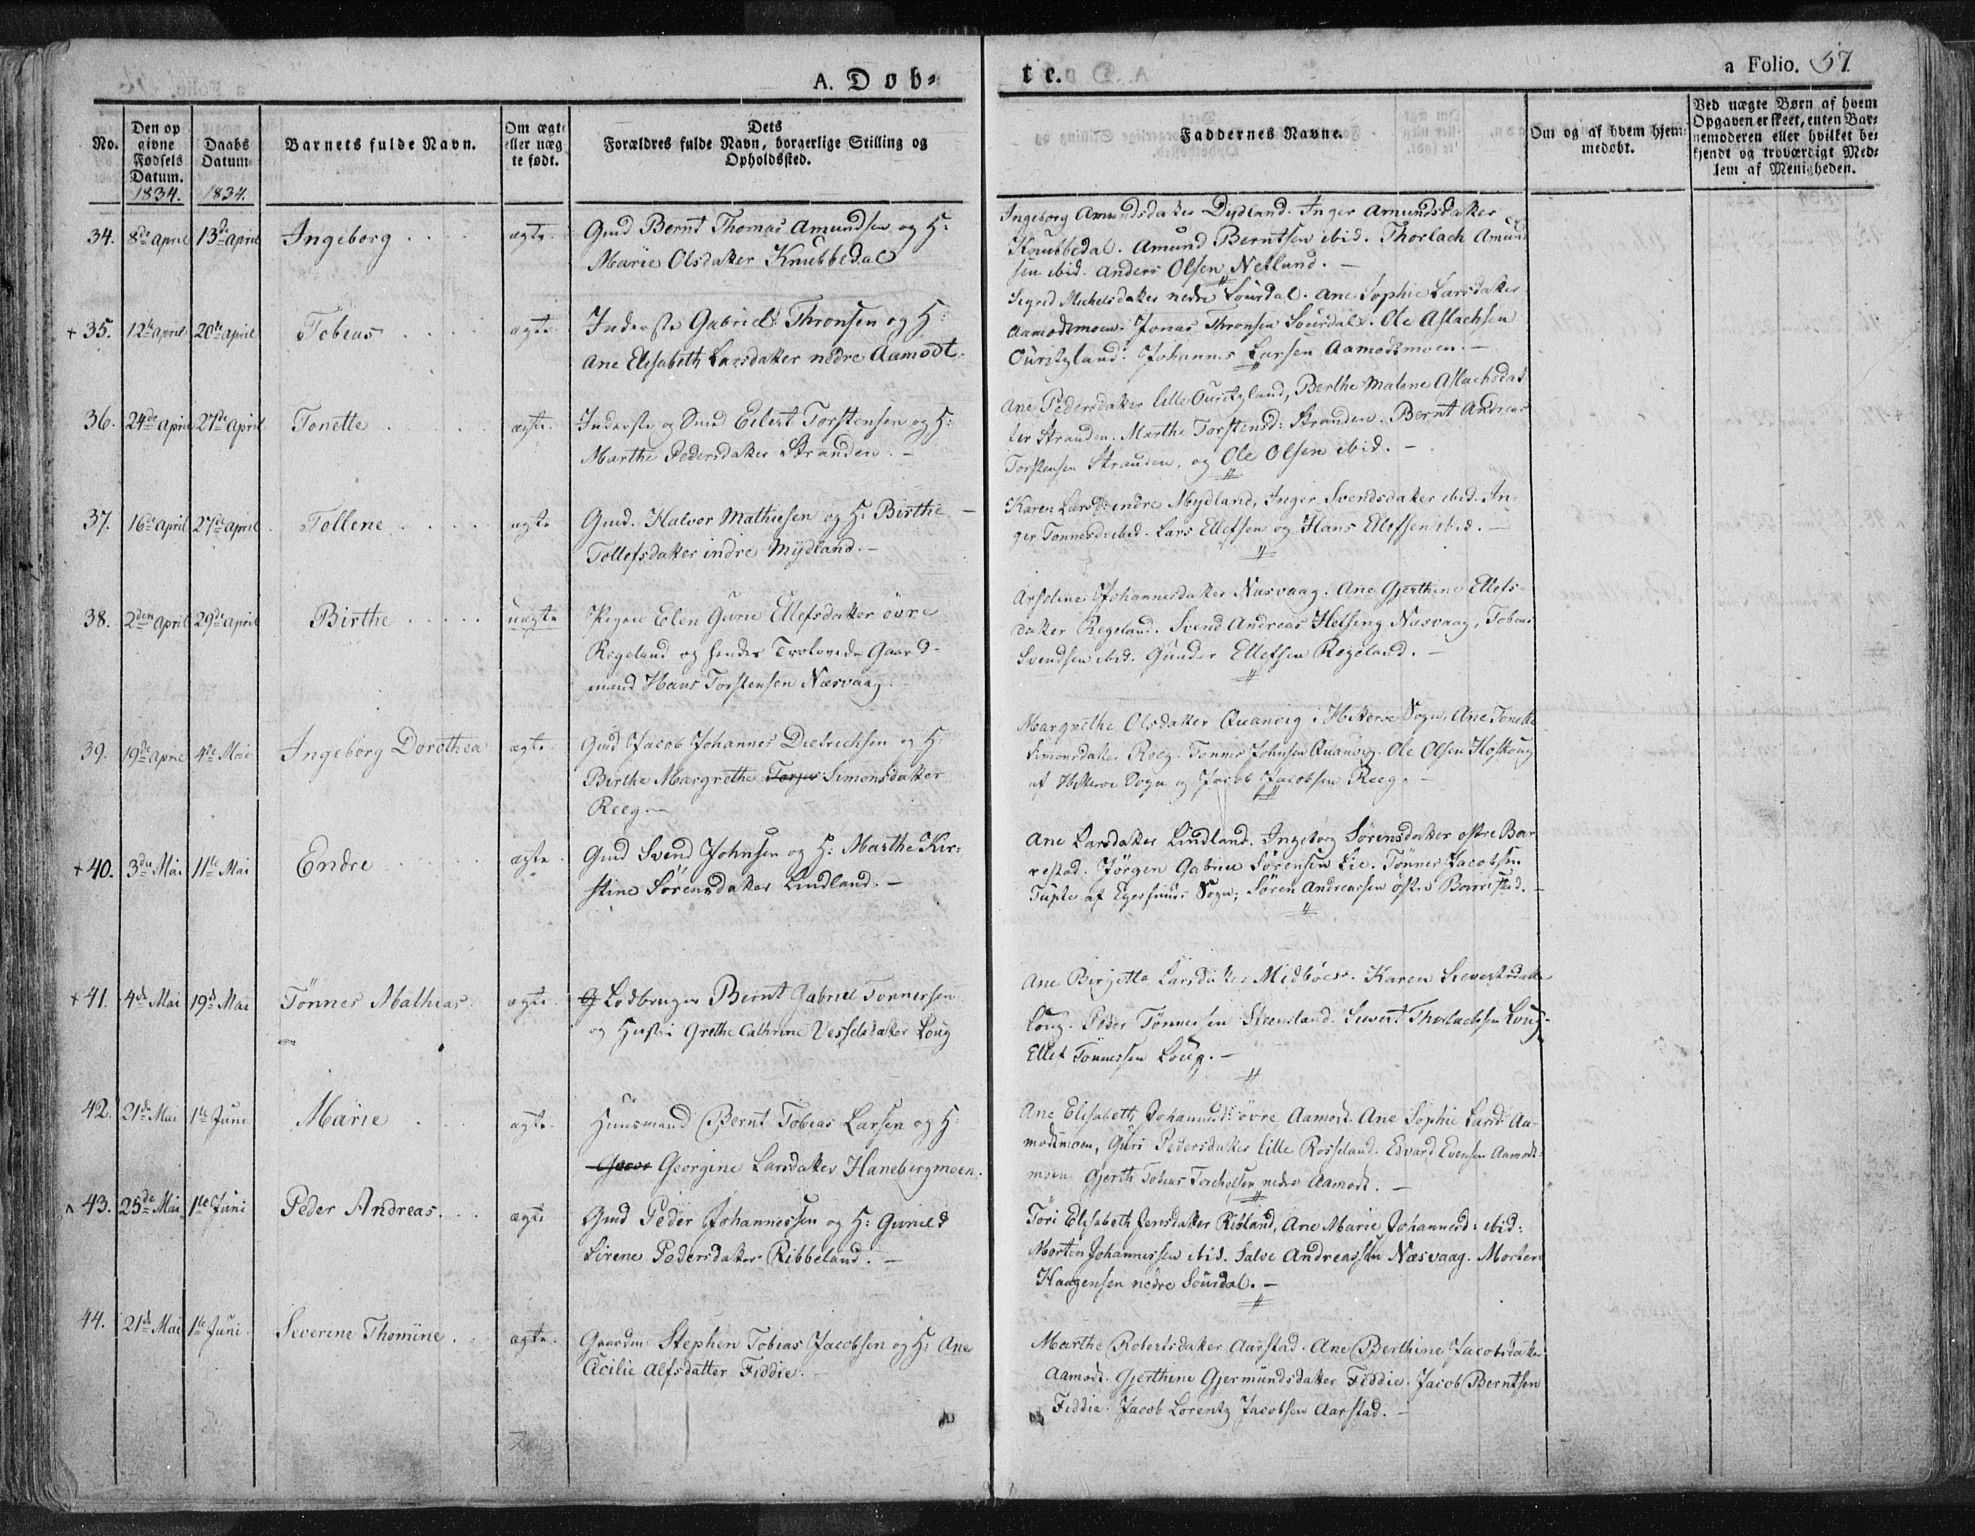 A. Døb-
te.
a Folio. 57.
No.
Den op
givne
Fødsels
Datum.
1834.
Daabs
Datum
1834.
Barnets fulde Navn.
Om ægte
eller uæg
te født.
Dets
Forældres fulde Navn, borgerlige Stilling og
Opholdssted.
Faddernes Navne.
Om og af hvem hjem-
medøbt.
Ved uægte Børn af hvem
Opgaven er skeet, enten Bar-
nemoderen eller hvilket be-
kjendt og troværdigt Med-
lem af Menigheden.
34. 8de April 13de April Ingeborg ægte. Gmd Bernt Thomas Amundsen og H:
Marie Olsdatter Knubbedal
Ingeborg Amundsdatter Dydland. Inger Amundsdatter
Knubbedal. Amund Berntsen ibid. Thorlach Amund
sen ibid. Anders Olsen Netland. -
+ 35. 12te April 20de April Tobias ægte Inderste Gabriel Thronsen og H:
Ane Elisabeth Larsdatter nedre Aamodt.
Sigrid Michelsdatter nedre Sourdal. Ane Sophie Larsdatter
Aamodtmoen. Jonas Thronsen Sourdal. Ole Aslachsen
Ouritzland. Johannes Larsen Aamodtmoen. -
36. 24de April 27de April Tonette ægte. Inderste og Smed Eilert Torstensen og H:
Marthe Pedersdatter Stranden. -
Ane Pedersdatter lille Ouritzland, Berthe Malene Aslachsdat
ter Stranden. Marthe Torstensd: Stranden. Bernt Andreas
Torstensen Stranden, og Ole Olsen ibid. -
37. 16de April 27de April Tollene ægte Gmd. Halvor Mathiesen og H: Birthe
Tollefsdatter indre Mydland. -
Karen Larsd: indre Mydland, Inger Svendsdatter ibid. In-
ger Tønnesd: ibid. Lars Ellefsen og Hans Ellefsen ibid. -
38. 2den April 29de April Birthe uægte Pigen Elen Gurie Ellefsdatter øvre
Regeland og hendes Trolovede Gaard-
mand Hans Torstensen Næsvaag.
Johannesdatter Næsvaag. Ane Gjerthine Ellefs-
datter Regeland. Svend Andreas Helsing Næsvaag, Tobias
Svendsen ibid. Gunder Ellefsen Regeland. -
39. 19de April 4de Mai Ingeborg Dorothea ægte. Gmd Jacob Johannes Dietrichsen og H:
Birthe Margrethe Torger Simonsdatter
Reeg. -
Margrethe Olsdatter Quanvig i Hitterøe Sogn, Ane Tonette
Simonsdatter Reeg. Tønnes Johnsen Quanvig. Ole Olsen
af Hitterøe Sogn og Jacob Jacobsen Reeg. -
+ 40. 3die Mai 11te Mai Endre ægte. Gmd Svend Johnsen og H: Marthe Kir-
stine Sørensdatter Lindland. -
Ane Larsdatter Lindland. Ingeborg Sørensdatter østre Bar
restad. Jørgen Gabriel Sørensen Lie. Tønnes Jacobsen
af Egersunds Sogn, Søren Andreassen østre Barrestad. -
+ 41. 4de Mai 19de Mai Tönnes Mathias. ægte. G Lodbruger Bernt Gabriel Tonnessen
og Hustru Grethe Cathrine Vesselsdatter Loug
Ane Birgitte Larsdatter Midbøe. Karen Sivertsdatter
Loug. Peder Tønnessen Steensland. Sivert Thorlachsen Loug
Ellef Tönnessen Loug. -
42. 21de Mai 1te Juni Marie ægte. Huusmand Bernt Tobias Larsen og H:
Georgine Larsdatter Hanebergmoen.
Ane Elisabeth Johannesd: øvre Aamodt. Ane Sophie Larsd: Aa-
modtmoen, Guri Pedersdatter lille Rosseland. Edvard Evensen Aamodt-
moen Gjerth Tobias nedre Aamodt. -
43. 25de Mai 1te Juni Peder Andreas. ægte Gmd Peder Johannessen og H: Guneld
Sirene Pedersdatter Ribbeland. -
Töri Elisabeth Jensdatter Ribland, Ane Marie Johannesd: ibid:
Morten Johannessen ibid. Salve Andreassen Næsvaag. Morten
Haagensen nedre Sourdal. -
44. 21de Mai 1te Juni Severine Thomine ægte. Gaardm: Stephen Tobias Jacobsen og H: Ane
Cicilie Alfsdatter Fiddie.
Marthe Robertsdatter Aarstad. Ane Berthine Jacobsdatter
Aamodt. Gjerthine Gjermundsdatter Fiddie. Jacob Berntsen
Fiddie. Jacob Lorentz Jacobsen Aarstad. -